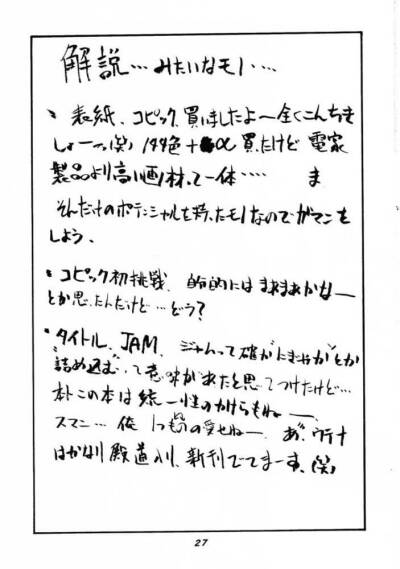 解説…みたいなモノ…
・表紙、コピック、買いましたよ〜全くこんちき
しょーっ(笑) 144色+α買ったけど 電家
製品より高い画材って一体…… ま
それだけのポテンシャルを持ったモノなのでガマンを
しよう。
・コピック初挑戦、的には まあまあかなー
とか思ったんだけど…どう?
・タイトル、JAM、ジャムって確か「にぎやか」とか
「詰め込む」って意味があったと思ってつけたけど…
この本は統一性のかけらもねー
スマン…俺 の受せねー、あ、ウテナ
はかなり殿道入り、新刊でてまーす、(笑)
27